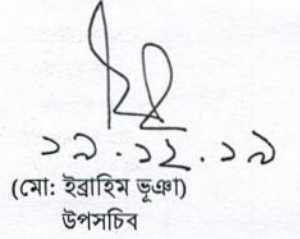 ১৯.১২.১৯
(মো: ইব্রাহিম ভূঞা)
উপসচিব